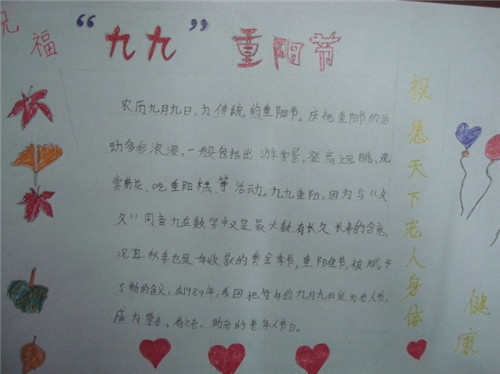 祝福
“九九”重阳节
农历九月九日,为传统的重阳节。庆祝重阳节的活
动多彩浪漫,一般包括出游赏景、登高远眺、观
赏菊花、吃重阳糕、等活动。九九重阳,因为与《久
久》同音九在数字中又是最大数,有长久长寿的含意,
况且秋季也是一年收获的黄金季节,重阳佳节,
了新的含义,在1989年,我国把每年的九月九日定为老人节,
祝愿天下老人身体
健康